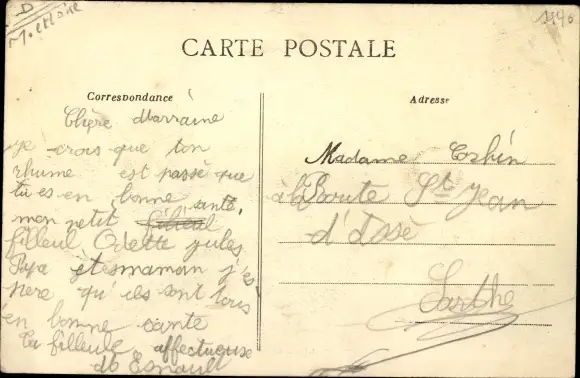 D
1140
CARTE POSTALE
Correspondance
Adresse
Chère Marraine
je crois que ton
rhume est passé que
tu es en bonne santé,
mon petit
filleul Odette jules
Papa et maman j'es
pere qu'ils sont tous
en bonne sante
Ta filleule affectueuse
Esnault
Madame Corbin
à la Boute St Jean
d'Assé
Sarthe